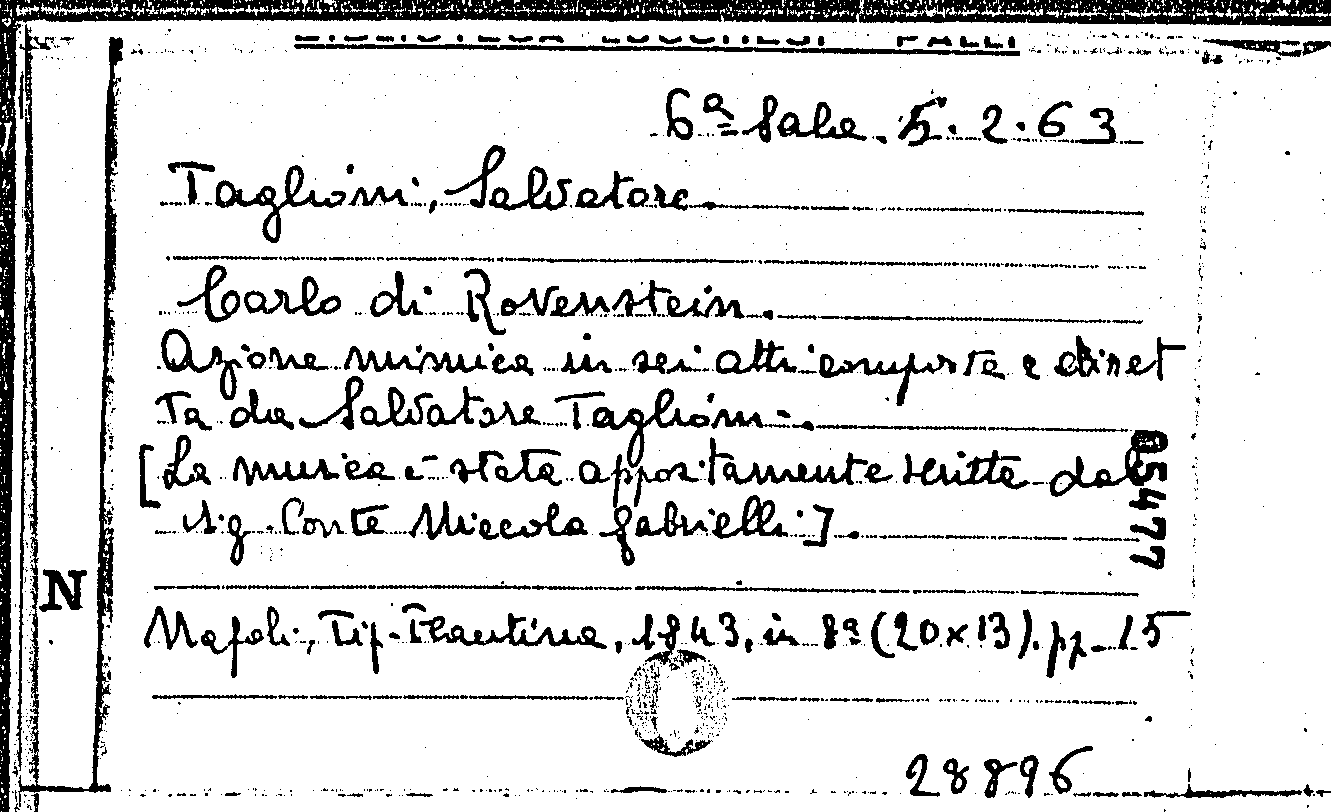 BIBLIOTECA LUCCHESI PALLI
6ª Sala. 5.2.63
Taglioni, Salvatore.
Carlo di Rovenstein.
Azione mimica in sei atti composta e diret
ta da Salvatore Taglioni.
[La musica è stata appositamente scritta dal
Sig. Conte Niccola Gabrielli].
Napoli, Tip. Flautina, 1843, in 8º (20x13). pp. 15
28896
N
477